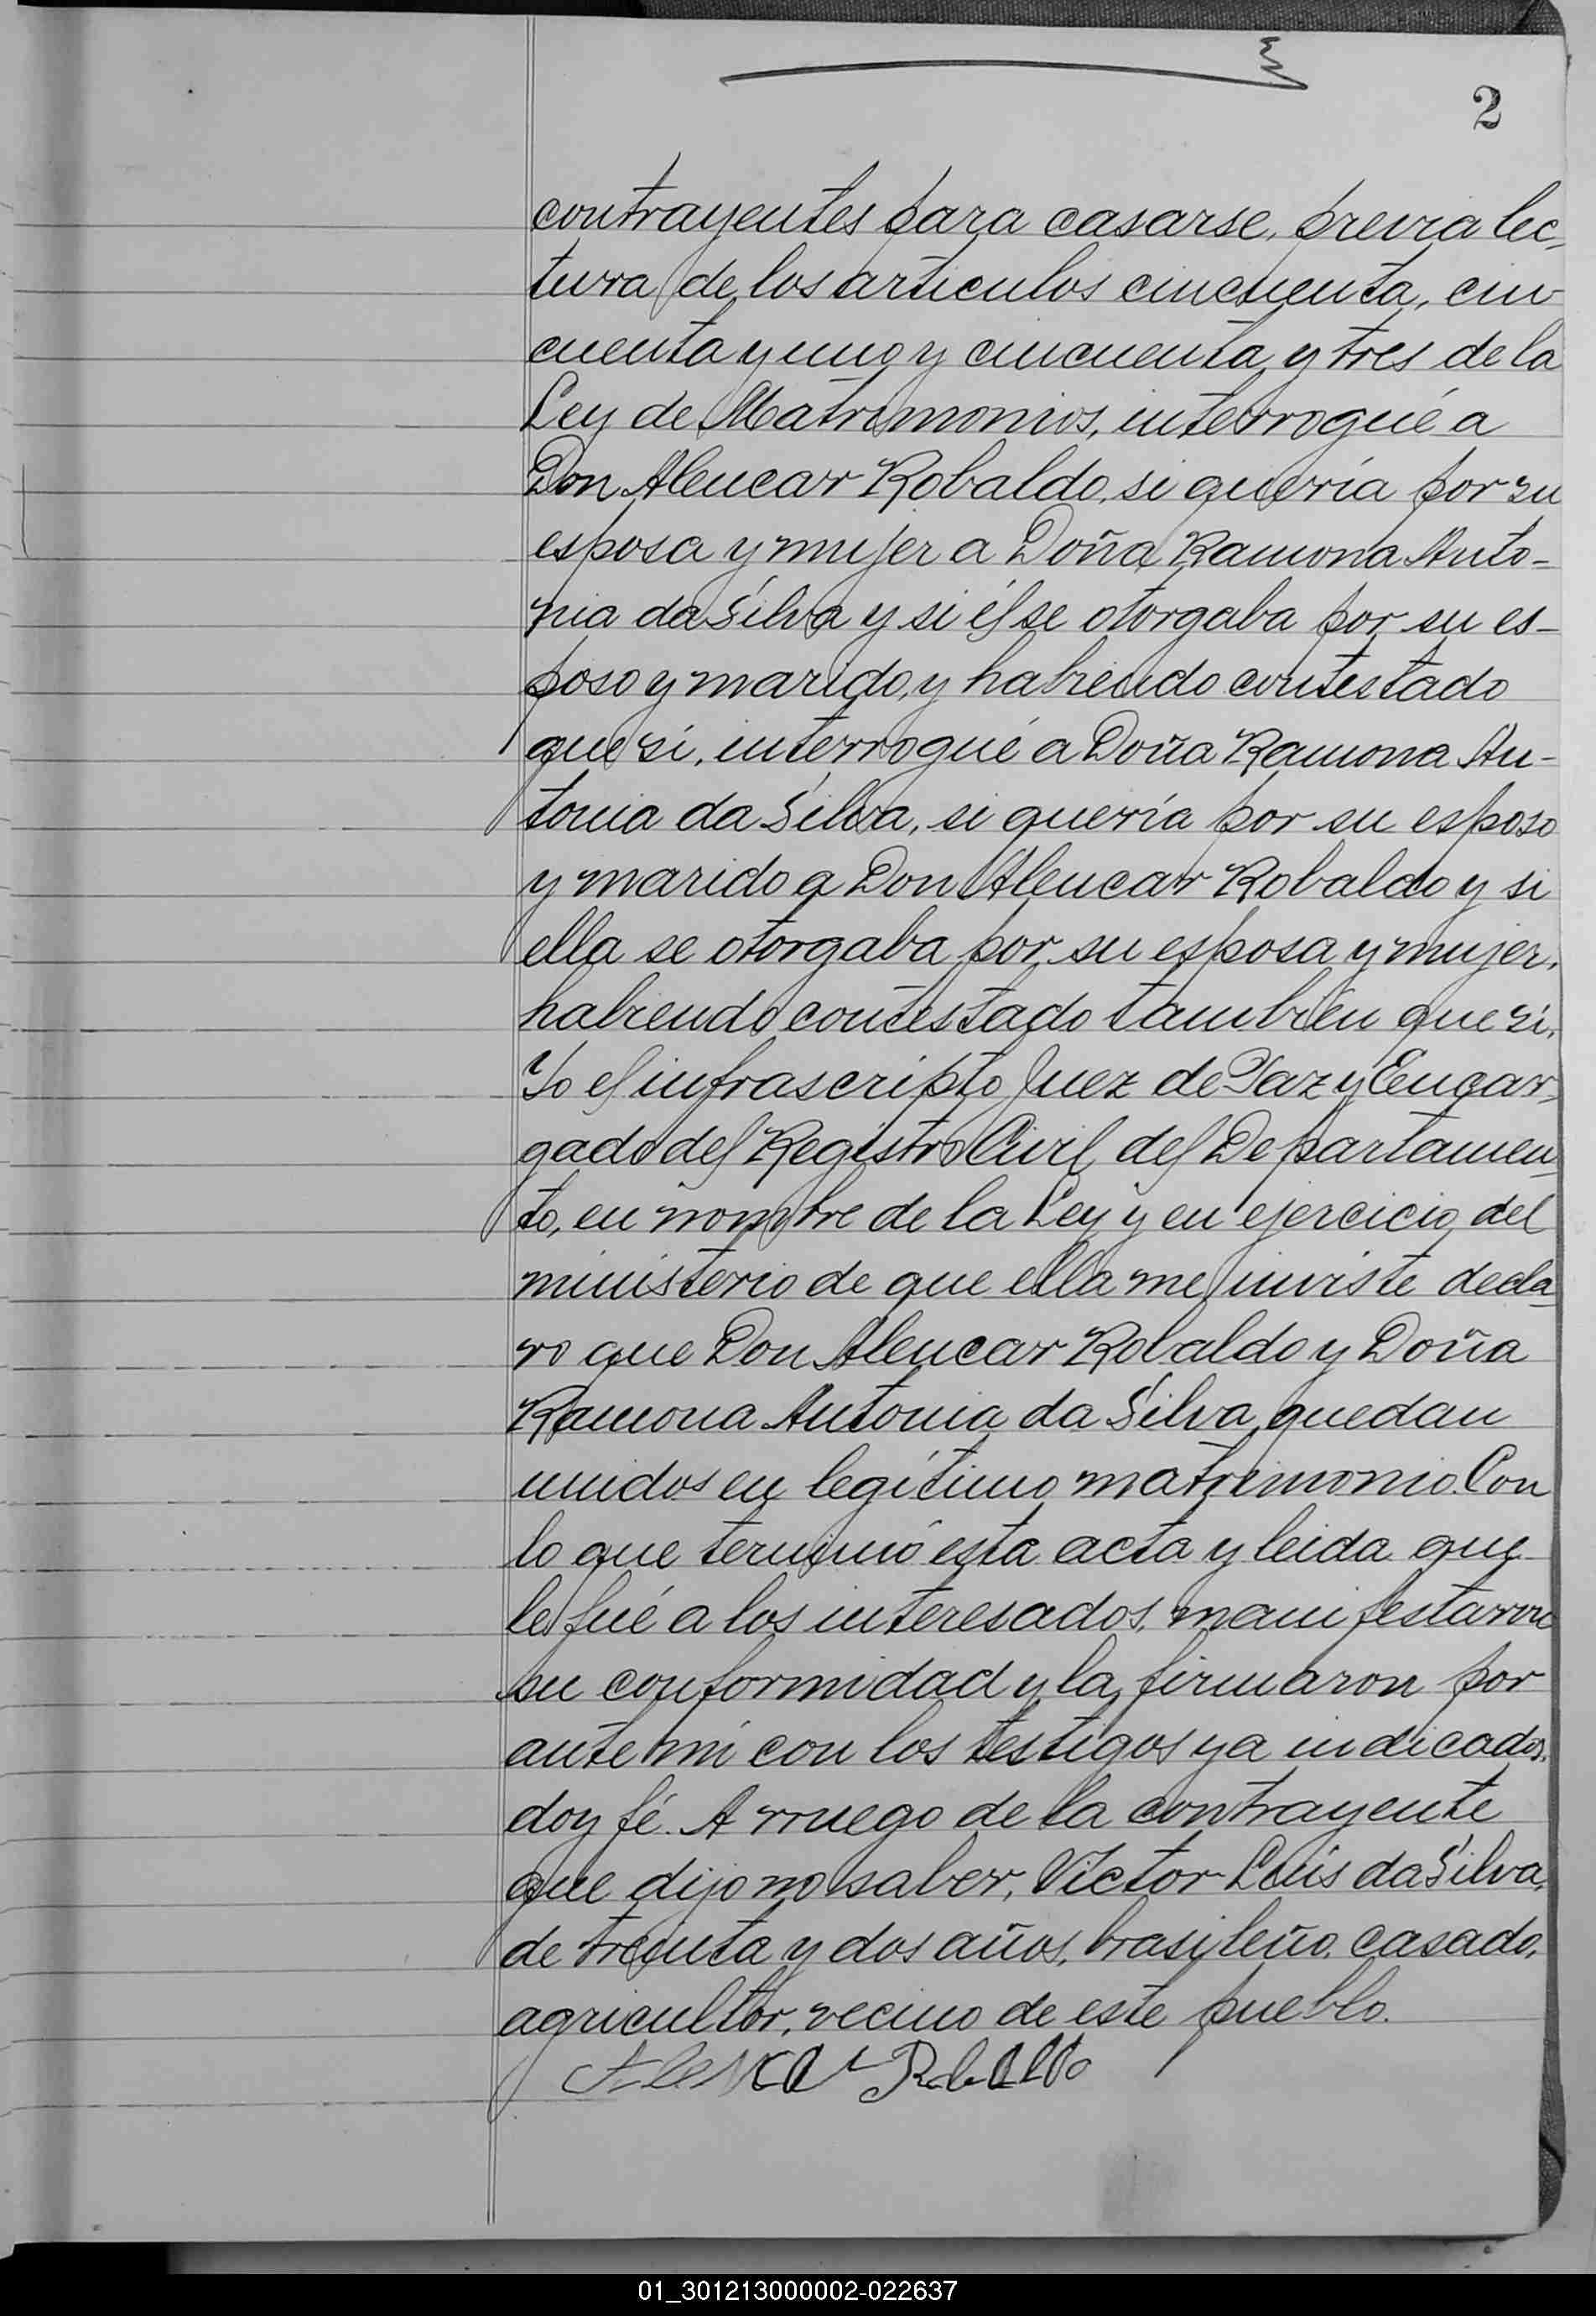 2
contrayentes para casarse, previa lec-
tura de los artículos cincuenta, cin-
cuenta y uno y cincuenta y tres de la
Ley de Matrimonios, interrogué a
Don Alencar Robaldo, si quería por su
esposa y mujer a Doña Ramona Anto-
nia da Silva y si él se otorgaba por su es-
poso y marido, y habiendo contestado
que sí, interrogué a Doña Ramona An-
tonia da Silva, si quería por su esposo
y marido a Don Alencar Robaldo y si
ella se otorgaba por su esposa y mujer,
habiendo contestado también que sí,
Yo el infrascripto Juez de Paz y Encar-
gado del Registro Civil del Departamen-
to, en nombre de la Ley y en ejercicio del
ministerio de que ella me inviste decla-
ro que Don Alencar Robaldo y Doña
Ramona Antonia da Silva, quedan
unidos en legítimo matrimonio. Con
lo que terminó esta acta y leida que
les fué a los interesados, manifestaron
su conformidad y la firmaron por
ante mí con los testigos ya indicados,
doy fé. A rruego de la contrayente
que dijo no saber, Víctor Luis da Silva,
de treinta y dos años, brasileño, casado,
agricultor, vecino de este pueblo.
Alencar Robaldo
01_301213000002-022637